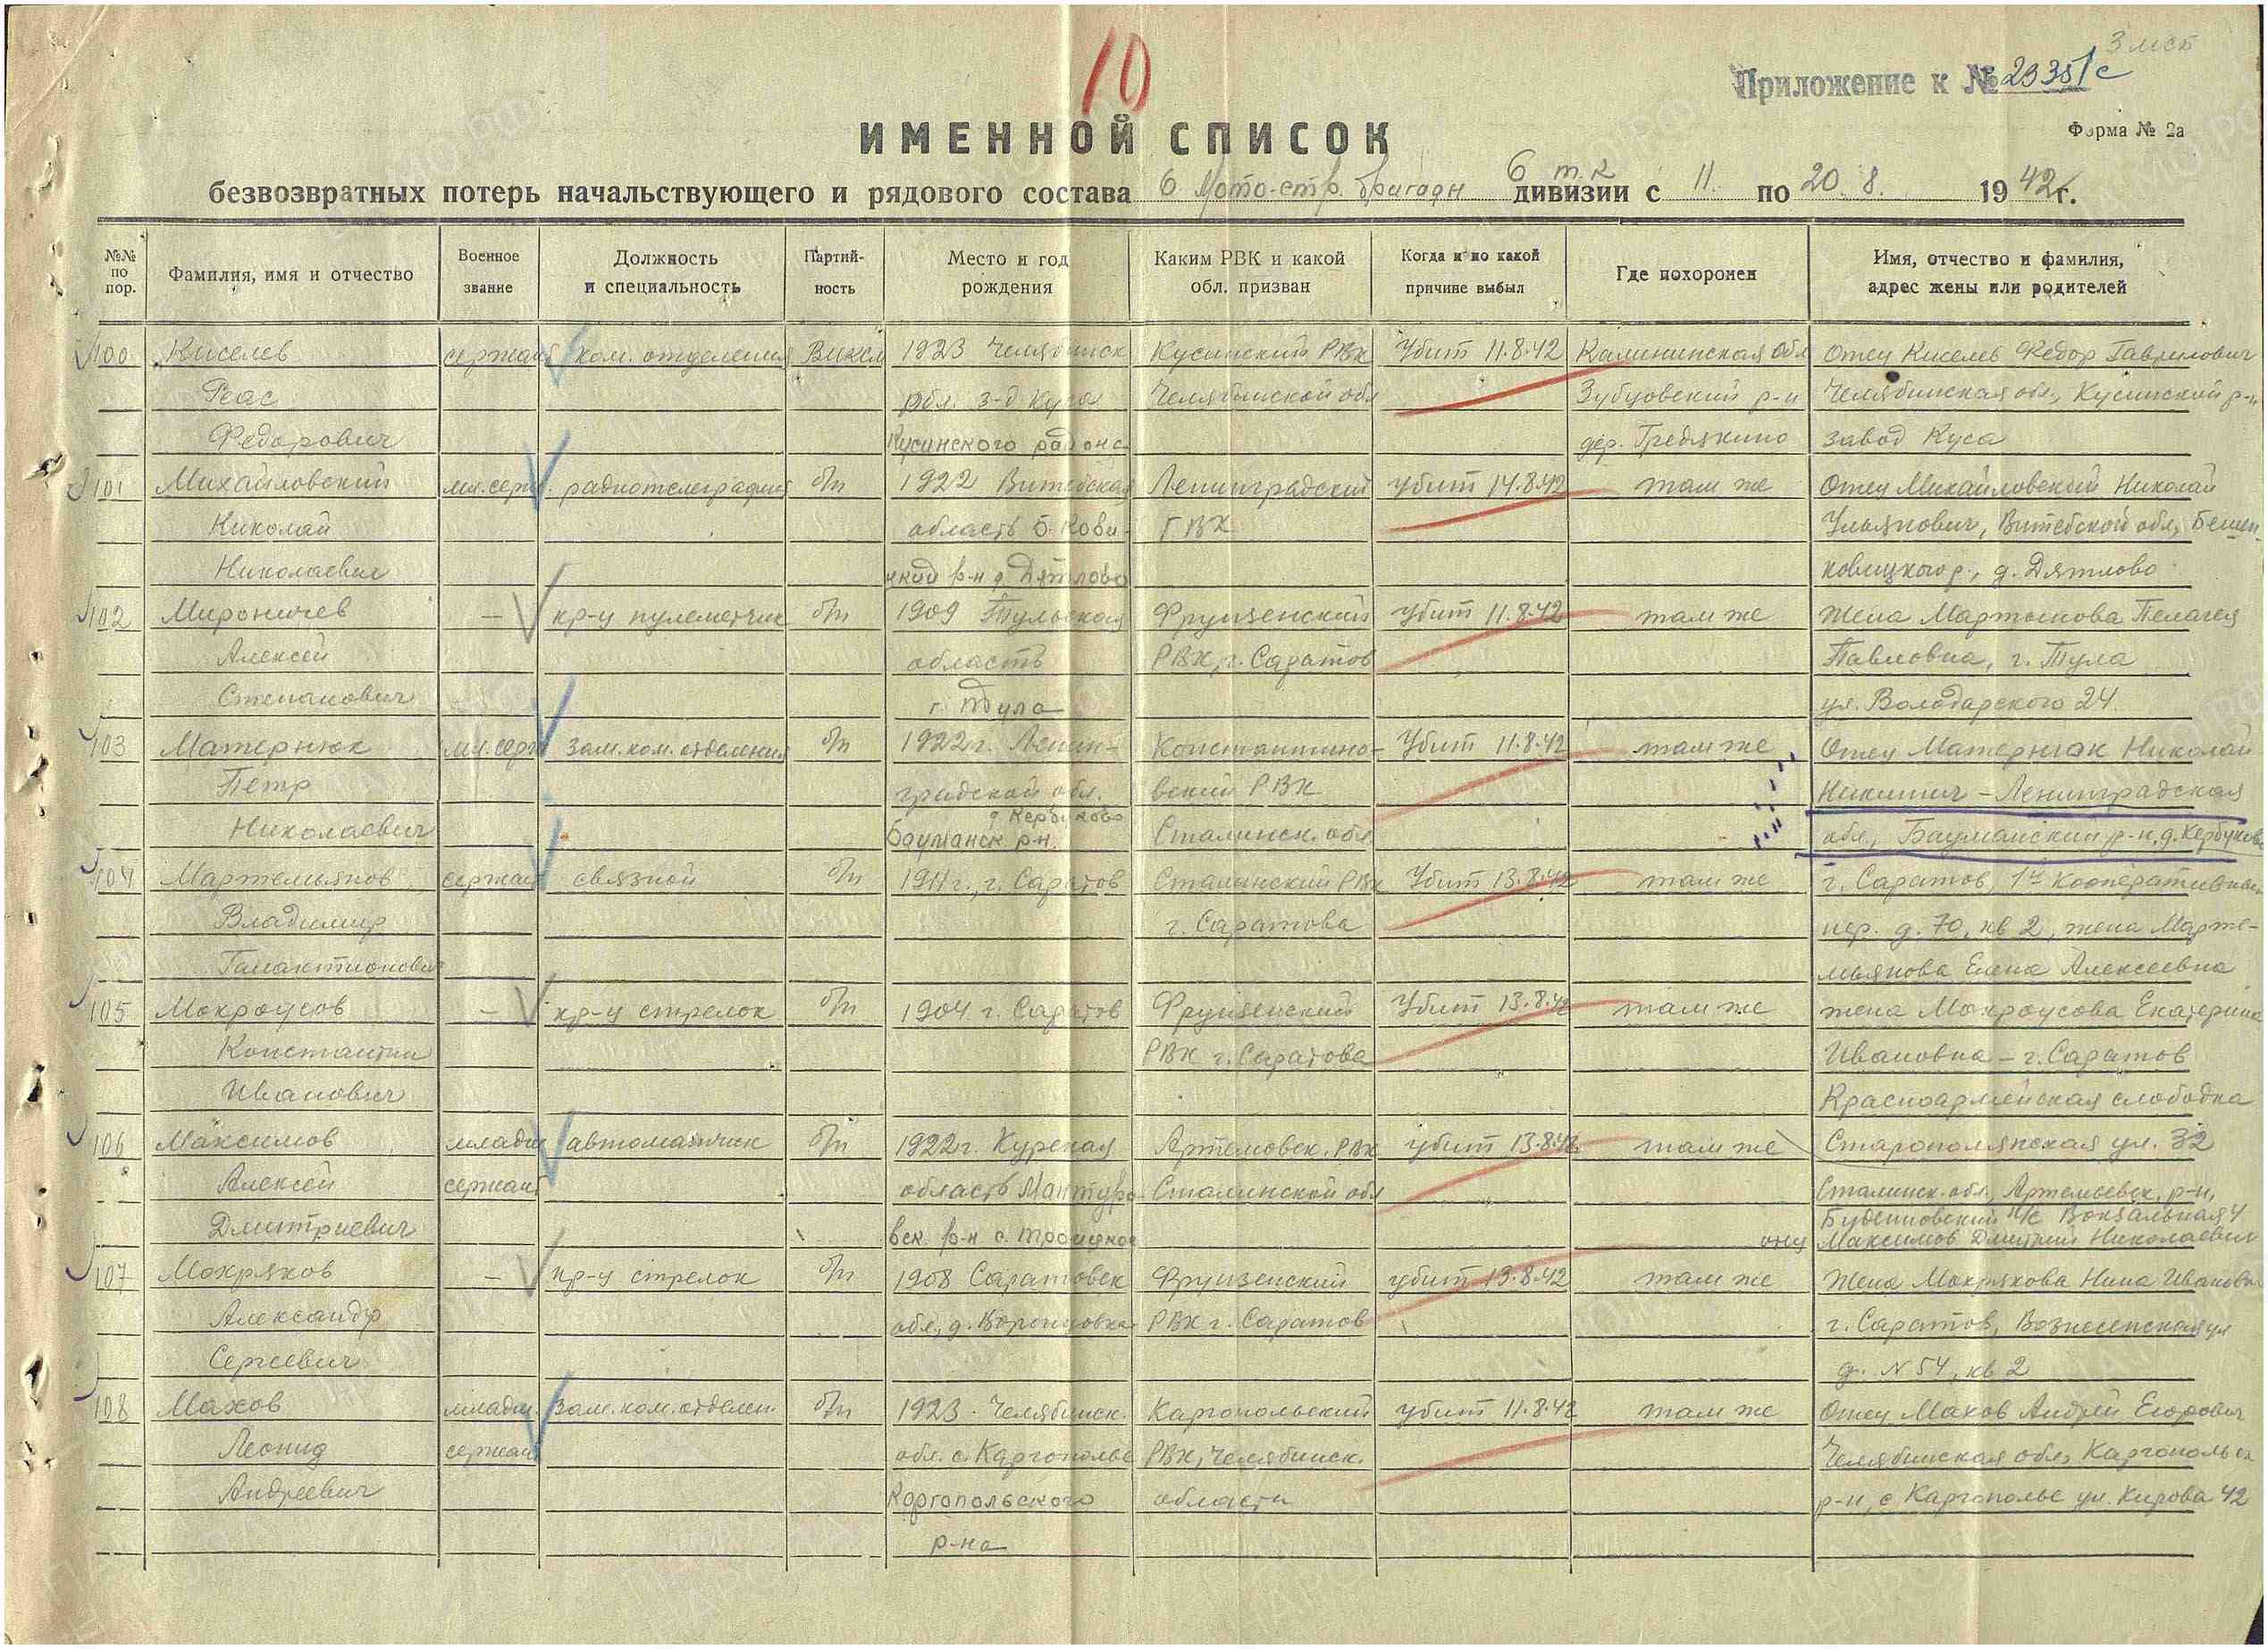 10
3 мсб
Приложение к № 23351с
Форма № 2а
ИМЕННОЙ СПИСОК
безвозвратных потерь начальствующего и рядового состава 6 Мото-стр. бригады 6 т.к дивизии с 11. по 20.8. 1942 г.
№№ по пор.
Фамилия, имя и отчество
Военное звание
Должность и специальность
Партийность
Место и год рождения
Каким РВК и какой обл. призван
Когда и по какой причине выбыл
Где похоронен
Имя, отчество и фамилия, адрес жены или родителей
100 Киселев сержант ком. отделения 1923 Челябинск Кусинский РВК Убит 11.8.42 Калининская обл Отец Киселев Федор Гаврилович
Реас обл. з-д Куса Челябинской обл Зубцовский р-н Челябинская обл, Кусинский р-н
Федорович Кусинского района дер. Гредякино завод Куса
101 Михайловский мл. серж. радиотелеграфист б/п 1922 Витебская Ленинградский убит 14.8.42 там же Отец Михайловский Николай
Николай область Б. Кови- ГВК Ульянович, Витебской обл, Бешен-
Николаевич цкий р-н д. Дятлово ковицкого р., д. Дятлово
102 Мироничев — кр-ц пулеметчик б/п 1909 Тульская Фрунзенский убит 11.8.42 там же Жена Мартынова Пелагея
Алексей область РВК, г. Саратов Павловна, г. Тула
Степанович г. Тула ул. Володарского 24.
103 Матернюк мл. серж зам. ком. отделения б/п 1922 г. Ленин- Константино- Убит 11.8.42 там же Отец Матернюк Николай
Петр градской обл. вский РВК Никитич - Ленинградская
д Кербуково
Николаевич Бауманск р-н. Сталинск. обл обл., Бауманский р-н, д. Кербуково
104 Мартемьянов сержант связной б/п 1911 г., г. Саратов Сталинский РВК Убит 13.8.42 там же г. Саратов, 1й Кооперативный
Владимир г. Саратова пер. д. 70, кв 2, жена Марте-
Галактионович мьянова Елена Алексеевна
105 Мокроусов — кр-ц стрелок б/п 1904 г. Саратов Фрунзенский Убит 13.8.42 там же жена Мокроусова Екатерина
Константин РВК г. Саратова Ивановна - г. Саратов
Иванович Красноармейская слободка
106 Максимов младш автоматчик б/п 1922 г. Курская Артемовск. РВК убит 13.8.42 там же Старополянская ул. 32
Алексей сержант область Мантуро- Сталинской обл Сталинск. обл., Артемьевск. р-н,
Дмитриевич вск. р-н с. Троицкое Буденновский п/с Вокзальная 4
отец Максимов Дмитрий Николаевич
107 Мокряков — кр-ц стрелок б/п 1908 Саратовск Фрунзенский убит 13.8.42 там же Жена Мокрякова Нина Ивановна
Александр обл, д. Воронцовка РВК г. Саратов г. Саратов, Вознесенская ул
Сергеевич д. N 54, кв 2
108 Махов младш. Зам. ком. отделен. б/п 1923 Челябинск. Каргопольский убит 11.8.42 там же Отец Махов Андрей Егорович
Леонид сержант обл. с. Каргополье РВК, Челябинск. Челябинская обл, Каргопольск
Андреевич Каргопольского области р-н, с Каргополье ул. Кирова 42
р-на